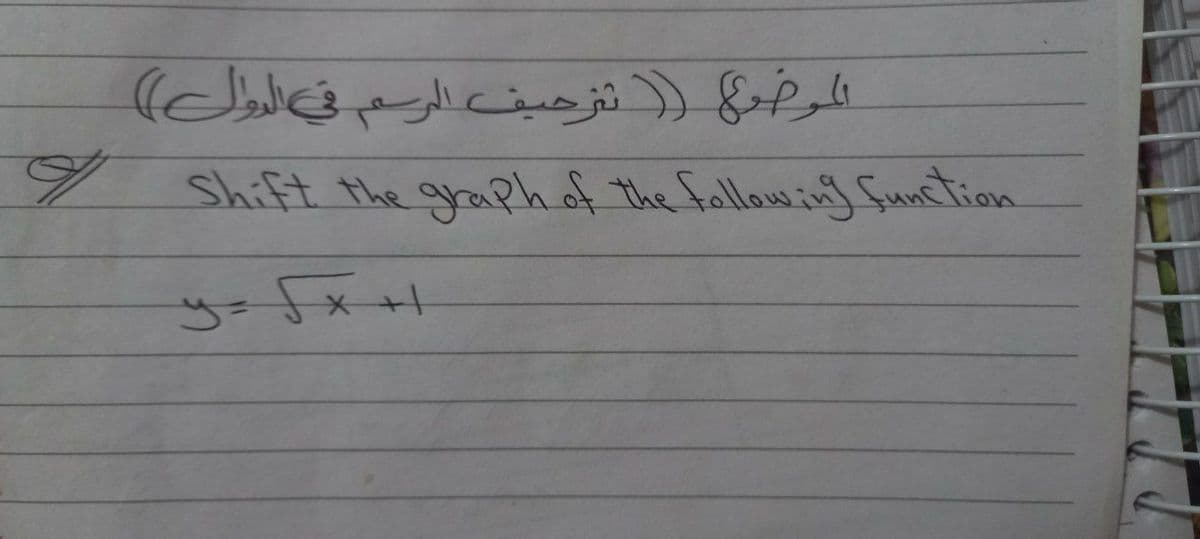 الموضوع (( تزحيف الرسم في الدوال ))
Q// Shift the graph of the following function
y = √x +1